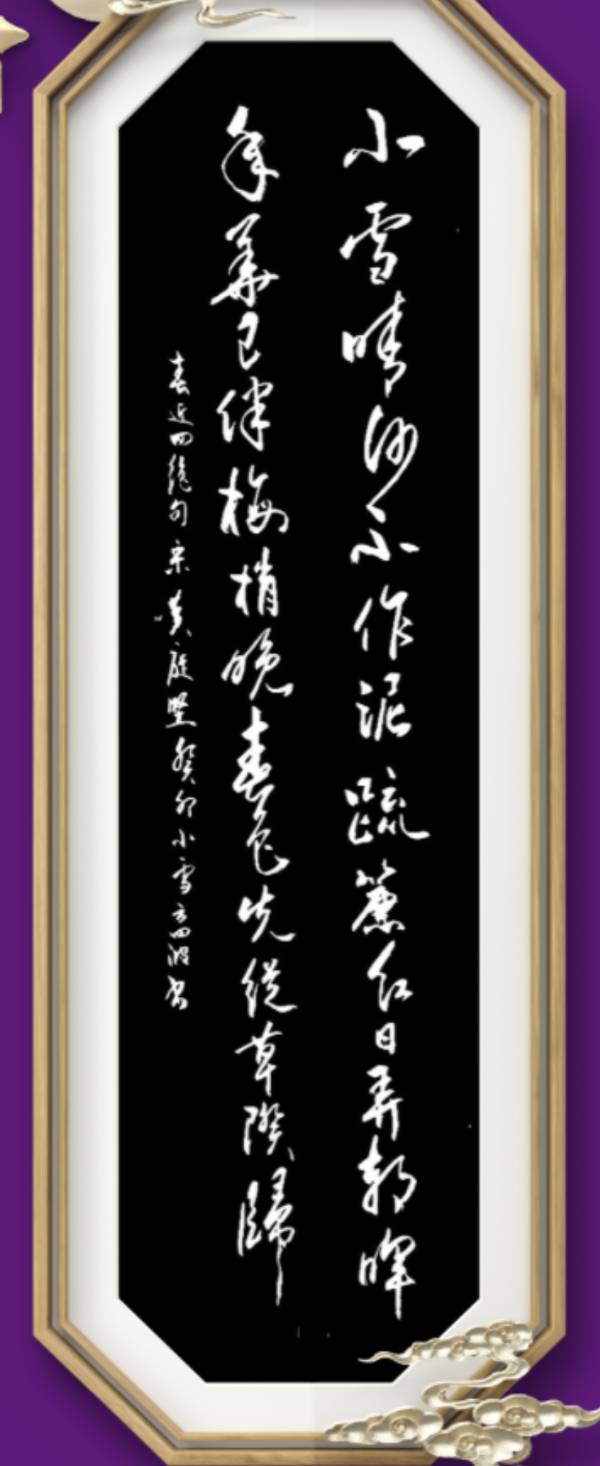 小雪晴沙不作泥疏簾红日弄朝暉
年華已伴梅梢晚春色先從草際歸
春近四绝句宋黄庭堅癸卯小雪书